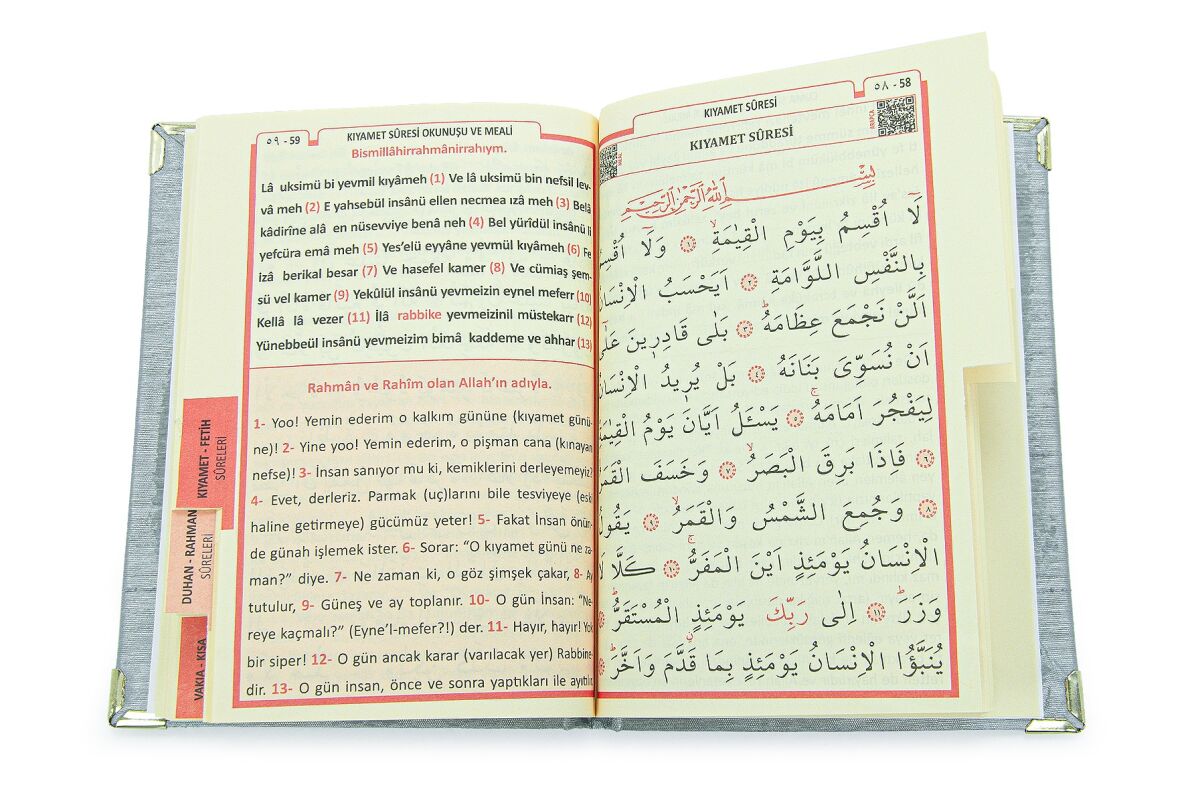 ٥٨ - 58
KIYAMET SÛRESİ
KIYAMET SÛRESİ
MEAL
ARAPÇA
بِسْمِ اللّٰهِ الرَّحْمٰنِ الرَّحِيمِ
لَٓا اُقْسِمُ بِيَوْمِ الْقِيٰمَةِۙ ﴿١﴾ وَلَٓا اُقْسِمُ
بِالنَّفْسِ اللَّوَّامَةِ ﴿٢﴾ اَيَحْسَبُ الْاِنْسَانُ
اَلَّنْ نَجْمَعَ عِظَامَهُۜ ﴿٣﴾ بَلٰى قَادِر۪ينَ عَلٰٓى
اَنْ نُسَوِّىَ بَنَانَهُ ﴿٤﴾ بَلْ يُر۪يدُ الْاِنْسَانُ
لِيَفْجُرَ اَمَامَهُۚ ﴿٥﴾ يَسْـَٔلُ اَيَّانَ يَوْمُ الْقِيٰمَةِ
﴿٦﴾ فَاِذَا بَرِقَ الْبَصَرُۙ ﴿٧﴾ وَخَسَفَ الْقَمَرُ
﴿٨﴾ وَجُمِعَ الشَّمْسُ وَالْقَمَرُۙ ﴿٩﴾ يَقُولُ
الْاِنْسَانُ يَوْمَئِذٍ اَيْنَ الْمَفَرُّۚ ﴿١٠﴾ كَلَّا لَا
وَزَرَۜ ﴿١١﴾ اِلٰى رَبِّكَ يَوْمَئِذٍ الْمُسْتَقَرُّۜ
يُنَبَّؤُا الْاِنْسَانُ يَوْمَئِذٍ بِمَا قَدَّمَ وَاَخَّرَۜ
٥٩ - 59
KIYAMET SÛRESİ OKUNUŞU VE MEALİ
Bismillâhirrahmânirrahıym.
Lâ uksimü bi yevmil kıyâmeh (1) Ve lâ uksimü bin nefsil lev-
vâ meh (2) E yahsebül insânü ellen necmea ızâ meh (3) Belâ
kâdirîne alâ en nüsevviye benâ neh (4) Bel yürîdül insânü li
yefcüra emâ meh (5) Yes’elü eyyâne yevmül kıyâmeh (6) Fe
izâ berikal besar (7) Ve hasefel kamer (8) Ve cümiaş şem-
sü vel kamer (9) Yekûlül insânü yevmeizin eynel meferr (10)
Kellâ lâ vezer (11) İlâ rabbike yevmeizinil müstekarr (12)
Yünebbeül insânü yevmeizim bimâ kaddeme ve ahhar (13)
Rahmân ve Rahîm olan Allah’ın adıyla.
1- Yoo! Yemin ederim o kalkım gününe (kıyamet günü-
ne)! 2- Yine yoo! Yemin ederim, o pişman cana (kınayan
nefse)! 3- İnsan sanıyor mu ki, kemiklerini derleyemeyiz?
4- Evet, derleriz. Parmak (uç)larını bile tesviyeye (eski
haline getirmeye) gücümüz yeter! 5- Fakat İnsan önün-
de günah işlemek ister. 6- Sorar: “O kıyamet günü ne za-
man?” diye. 7- Ne zaman ki, o göz şimşek çakar, 8- Ay
tutulur, 9- Güneş ve ay toplanır. 10- O gün İnsan: “Ne-
reye kaçmalı?” (Eyne’l-mefer?!) der. 11- Hayır, hayır! Yok
bir siper! 12- O gün ancak karar (varılacak yer) Rabbine-
dir. 13- O gün insan, önce ve sonra yaptıkları ile ayıbtır
KIYAMET - FETİH
SÛRELERİ
DUHAN - RAHMAN
SÛRELERİ
VAKIA - KISA